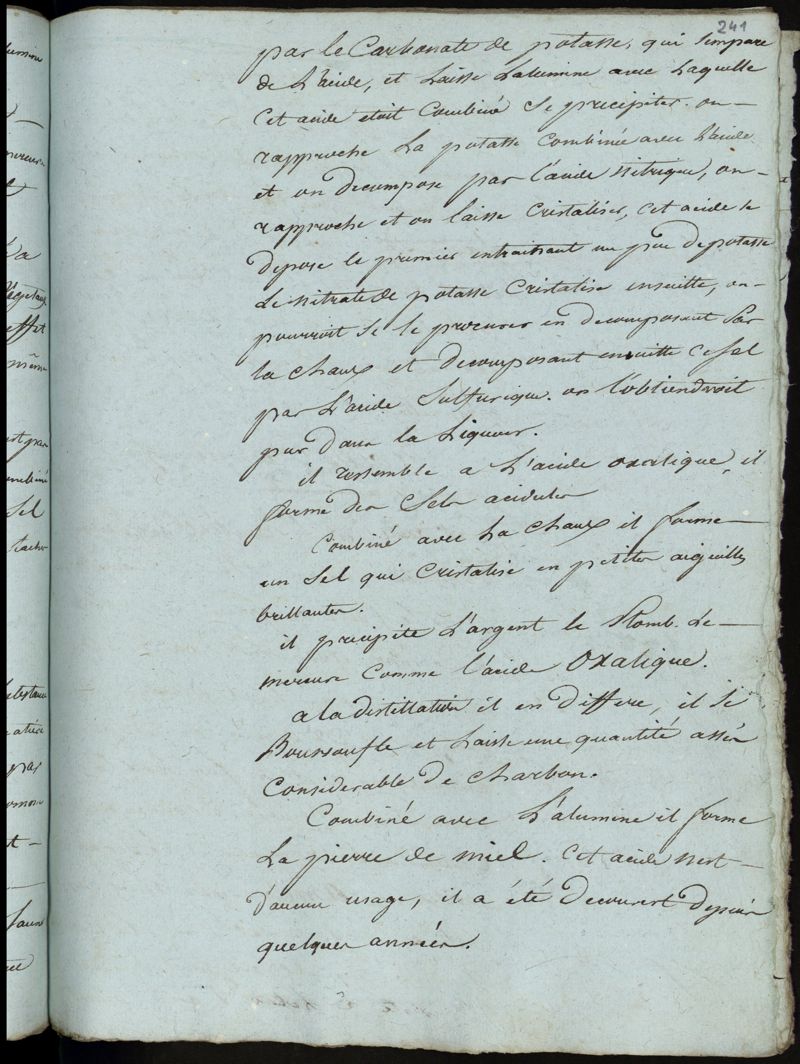 241
par le Carbonate de potasse, qui s'empare
de L'acide, et Laisse L'alumine avec Laquelle
Cet acide etoit Combiné Se precipiter. on
rapproche La potasse Combinée avec L'acide
et on decompose par l'acide nitrique, on
rapproche et on laisse Cristaliser, Cet acide se
depose le premier entrainant un peu de potasse
Le nitrate de potasse Cristalise ensuitte, on
pourroit Se le procurer en decomposant Par
la Chaux et decomposant ensuitte ce Sel
par L'acide Sulfurique. on l'obtiendroit
pur dans la Liqueur.
il ressemble a L'acide oxalique, il
forme des Sels acidules
Combiné avec La Chaux il forme
un Sel qui Cristalise en petites aiguilles
brillantes.
il precipite L'argent le Plomb. Le
mercure Comme l'acide Oxalique.
a la distillation il en differe, il se
Boursoufle et Laisse une quantité assés
Considerable de Charbon.
Combiné avec L'alumine il forme
La pierre de miel. Cet acide nest
d'aucun usage, il a été decouvert depuis
quelques années.